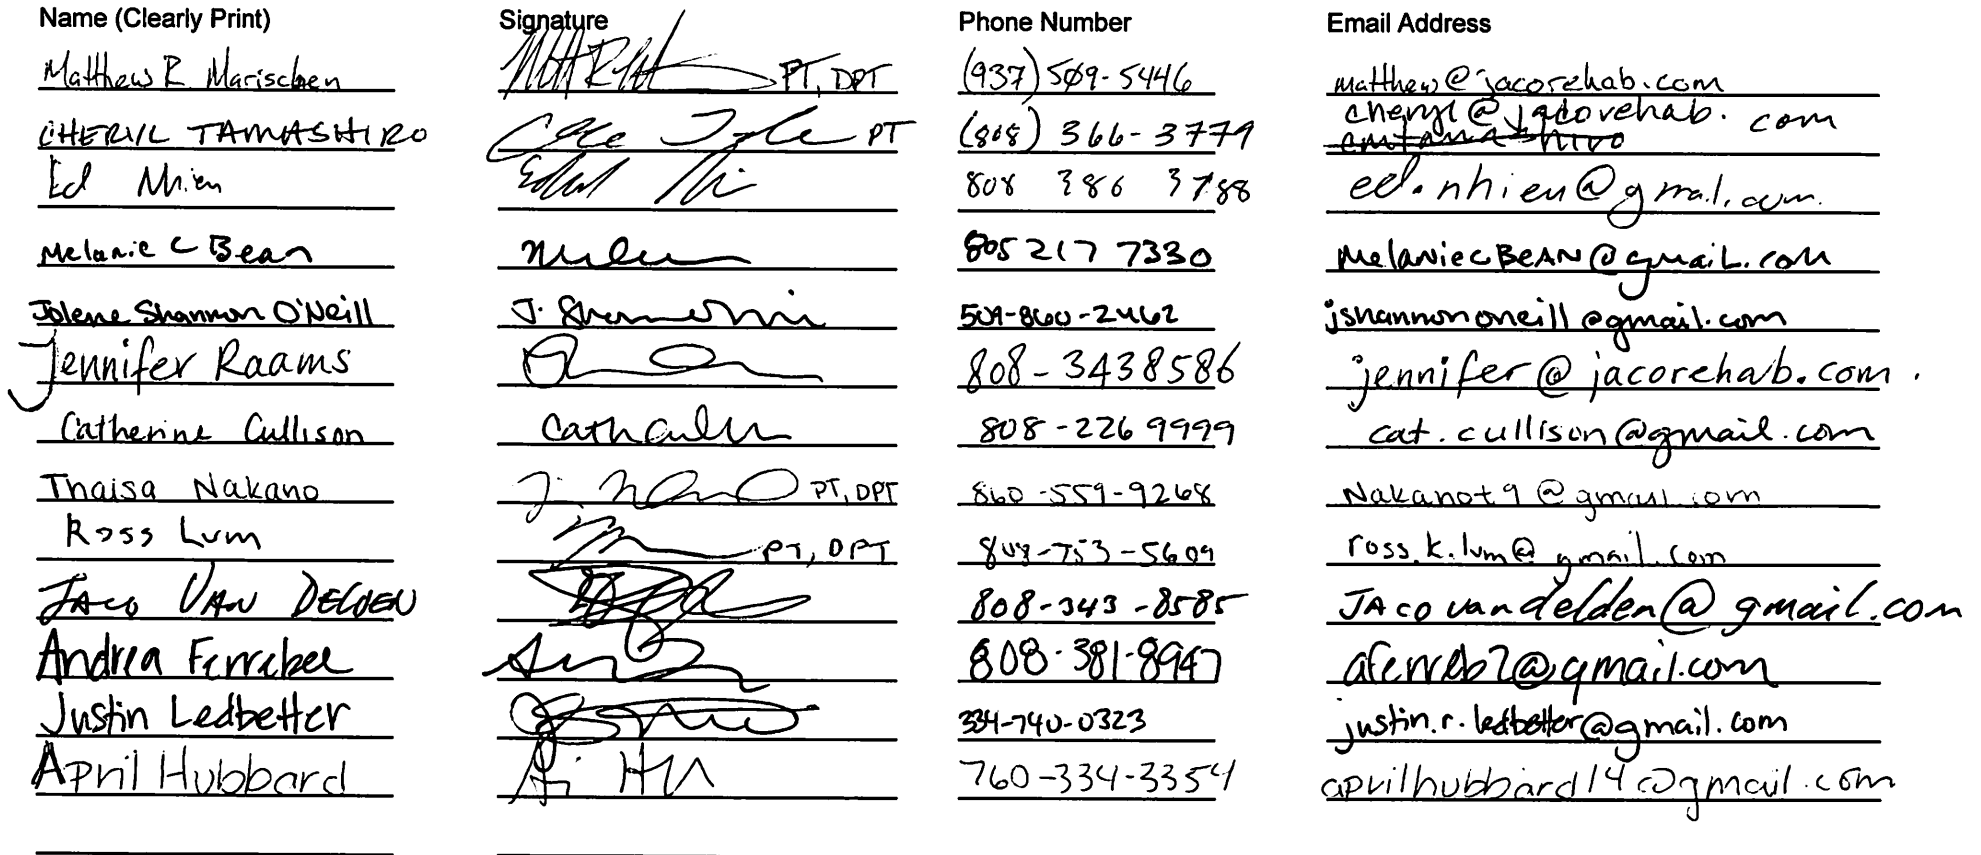 Name (Clearly Print) Signature Phone Number Email Address
Matthew R Marischen PT, DPT (937) 509-5446 matthew@jacorehab.com
CHERYL TAMASHIRO PT (808) 366-3779 cheryl@jacorehab.com
Ed Nhien 808 386 3788 ed.nhien@gmail.com
Melanie C Bean 805 217 7330 MelaniecBeAN@gmaiL.com
Jolene Shannon O'Neill J. 509-860-2462 jshannononeill@gmail.com
Jennifer Raams 808-3438586 jennifer@jacorehab.com.
Catherine Cullison 808-226 9999 cat.cullison@gmail.com
Thaisa Nakano PT, DPT 860-559-9268 Nakanot9@gmail.com
Ross Lum PT, DPT 808-753-5609 ross.k.lum@gmail.com
JACO VAN DELDEN 808-343-8585 JAcovandelden@gmail.com
Andrea Ferrebee 808-381-8947 @gmail.com
Justin Ledbetter 334-740-0323 justin.r.ledbetter@gmail.com
April Hubbard 760-334-3354 aprilhubbard14@gmail.com